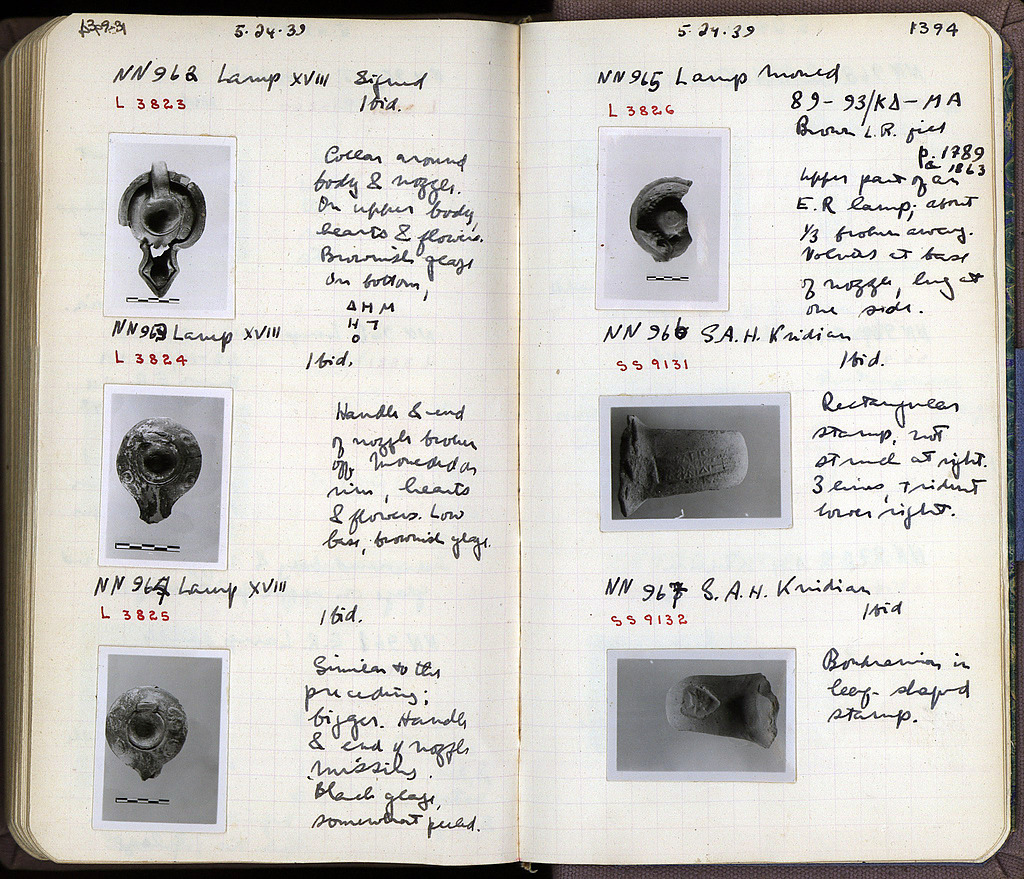 5.24.39
NN 962 Lamp XVIII Signed
L 3823 Ibid.
Collar around
body & nozzle.
On upper body,
hearts & flowers.
Brownish glaze
On bottom,
Δ H M
H T
O
NN 963 Lamp XVIII
L 3824 Ibid.
Handle & end
of nozzle broken
off. Moulded on
rim, hearts
& flowers. Low
base, brownish glaze.
NN 964 Lamp XVIII
L 3825 Ibid.
Similar to the
preceding;
bigger. Handle
& end of nozzle
missing.
Black glaze,
somewhat peeled.
5.24.39 1394
NN 965 Lamp
L 3826 89-93/ΚΔ-ΜΑ
Brown L.R. fill
p. 1789
a 1863
Upper part of an
E.R lamp; about
1/3 broken away.
Volutes at base
of nozzle, lug at
one side.
NN 966 S.A.H. Knidian
SS 9131 Ibid.
Rectangular
stamp, not
struck at right.
3 lines, trident
lower right.
NN 967 S.A.H. Knidian
SS 9132 Ibid
in
leaf-shaped
stamp.